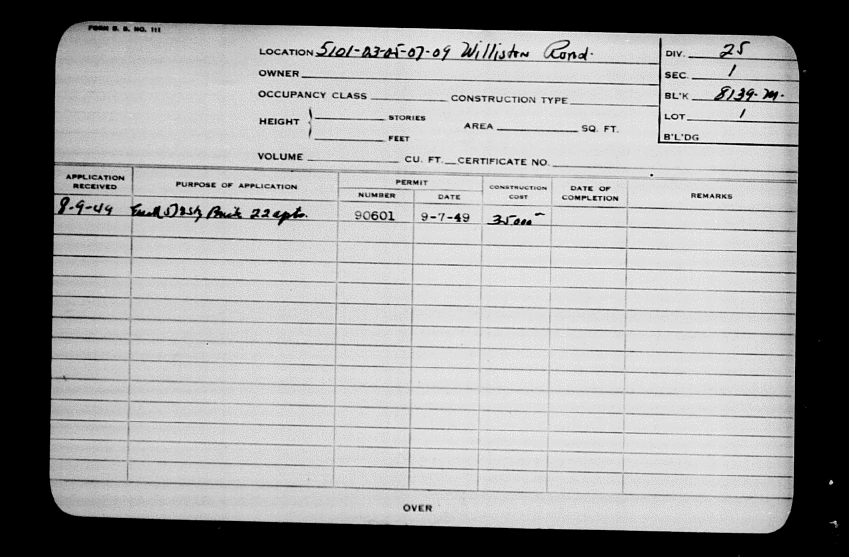 FORM B. B. NO. 111
LOCATION 5101-03-05-07-09 Williston Road.
DIV. 25
OWNER
SEC. 1
OCCUPANCY CLASS CONSTRUCTION TYPE
BL'K 8139-M.
HEIGHT } STORIES AREA SQ. FT.
LOT 1
FEET
B'L'DG
VOLUME CU. FT. CERTIFICATE NO.
APPLICATION RECEIVED PURPOSE OF APPLICATION PERMIT NUMBER DATE CONSTRUCTION COST DATE OF COMPLETION REMARKS
8-9-49 5) 2 Sty Brick 22 apts. 90601 9-7-49 35000
OVER